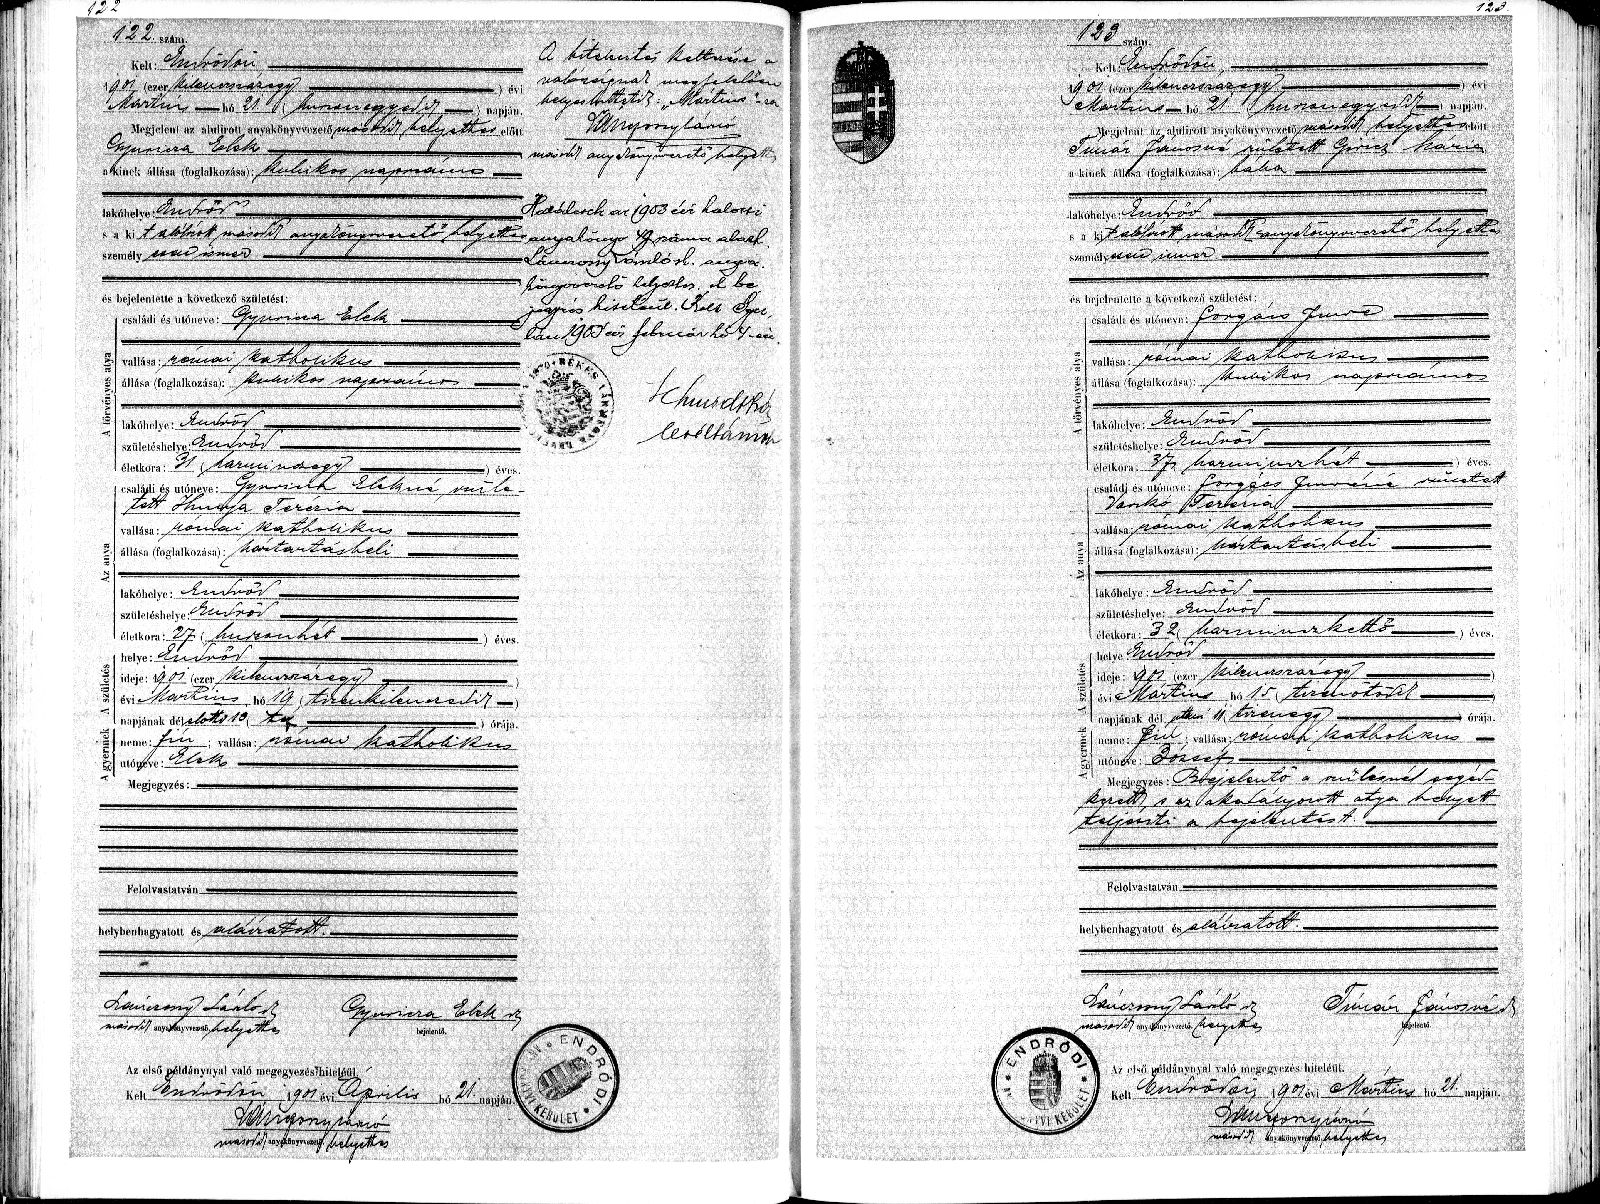 122
122. szám.
Kelt: Endrődön
1901 (ezer kilencszázegy) évi
Mártius hó 21 (huszonegyedik) napján.
Megjelent az alulirott anyakönyvvezető, másodk helyettes előtt
Gyuricza Elek
a kinek állása (foglalkozása): kubikos napszámos
lakóhelye: Endrőd
s a kit alólirott másodk anyakönyvvezető helyettes
személyesen ismer
és bejelentette a következő születést:
A törvényes atya
családi és utóneve: Gyuricza Elek
vallása: római katholikus
állása (foglalkozása): kubikos napszámos
lakóhelye: Endrőd
születéshelye: Endrőd
életkora: 31 (harminczegy) éves.
Az anya
családi és utóneve: Gyuricza Elekné szüle-
tett Hunya Terézia
vallása: római katholikus
állása (foglalkozása): háztartásbeli
lakóhelye: Endrőd
születéshelye: Endrőd
életkora: 27 (huszonhét) éves.
A születés
helye: Endrőd
ideje: 1901 (ezer kilencszázegy)
évi Mártius hó 19 (tizenkilenczedik)
napjának dél előtti 10 (tíz) órája.
A gyermek
neme: fiú; vallása: római katholikus
utóneve: Elek
Megjegyzés:
Felolvastatván
helybenhagyatott és aláiratott.
Lánczony László
másodk anyakönyvvezető helyettes
Gyuricza Elek
bejelentő.
Az első példánynyal való megegyezés hiteléül.
Kelt Endrődön, 1901 évi Április hó 21. napján.
másodk anyakönyvvezető helyettes
ENDRŐDI
KERÜLET
A hitelesítés keltezése a
valóságnak megfelelően
helyesbittetik: "Mártius"-ra
másodk anyakönyvvezető helyettes
1903 évi halotti
helyettes
február hó
BÉKÉS
levéltárnok
123.
123 szám.
Kelt: Endrődön,
1901 (ezer kilencszázegy) évi
Mártius hó 21 (huszonegyedik) napján.
Megjelent az alulirott anyakönyvvezető másodk helyettes előtt
Tímár Jánosné született Giricz Mária
a kinek állása (foglalkozása): bába
lakóhelye: Endrőd
s a kit alólirott másodk anyakönyvvezető helyettes
személyesen ismer
és bejelentette a következő születést:
A törvényes atya
családi és utóneve: Forgács Imre
vallása: római katholikus
állása (foglalkozása): kubikos napszámos
lakóhelye: Endrőd
születéshelye: Endrőd
életkora: 37 (harminczhét) éves.
Az anya
családi és utóneve: Forgács Imréné született
Vaskó Terézia
vallása: római katholikus
állása (foglalkozása): háztartásbeli
lakóhelye: Endrőd
születéshelye: Endrőd
életkora: 32 (harminczkettő) éves.
A születés
helye: Endrőd
ideje: 1901 (ezer kilencszázegy)
évi Mártius hó 15 (tizenötödik)
napjának dél utáni 11 (tizenegy) órája.
A gyermek
neme: fiú; vallása: római katholikus
utóneve: József
Megjegyzés: Bejelentő a szülésnél segéd-
kezett, s az akadályozott atya helyett
teljesíti a bejelentést.
Felolvastatván
helybenhagyatott és aláíratott.
Lánczony László
másodk anyakönyvvezető helyettes
Tímár Jánosné
bejelentő.
Az első példánynyal való megegyezés hiteléül.
Kelt Endrődön, 1901 évi Mártius hó 21. napján.
másodk anyakönyvvezető helyettes
ENDRŐDI
KERÜLET